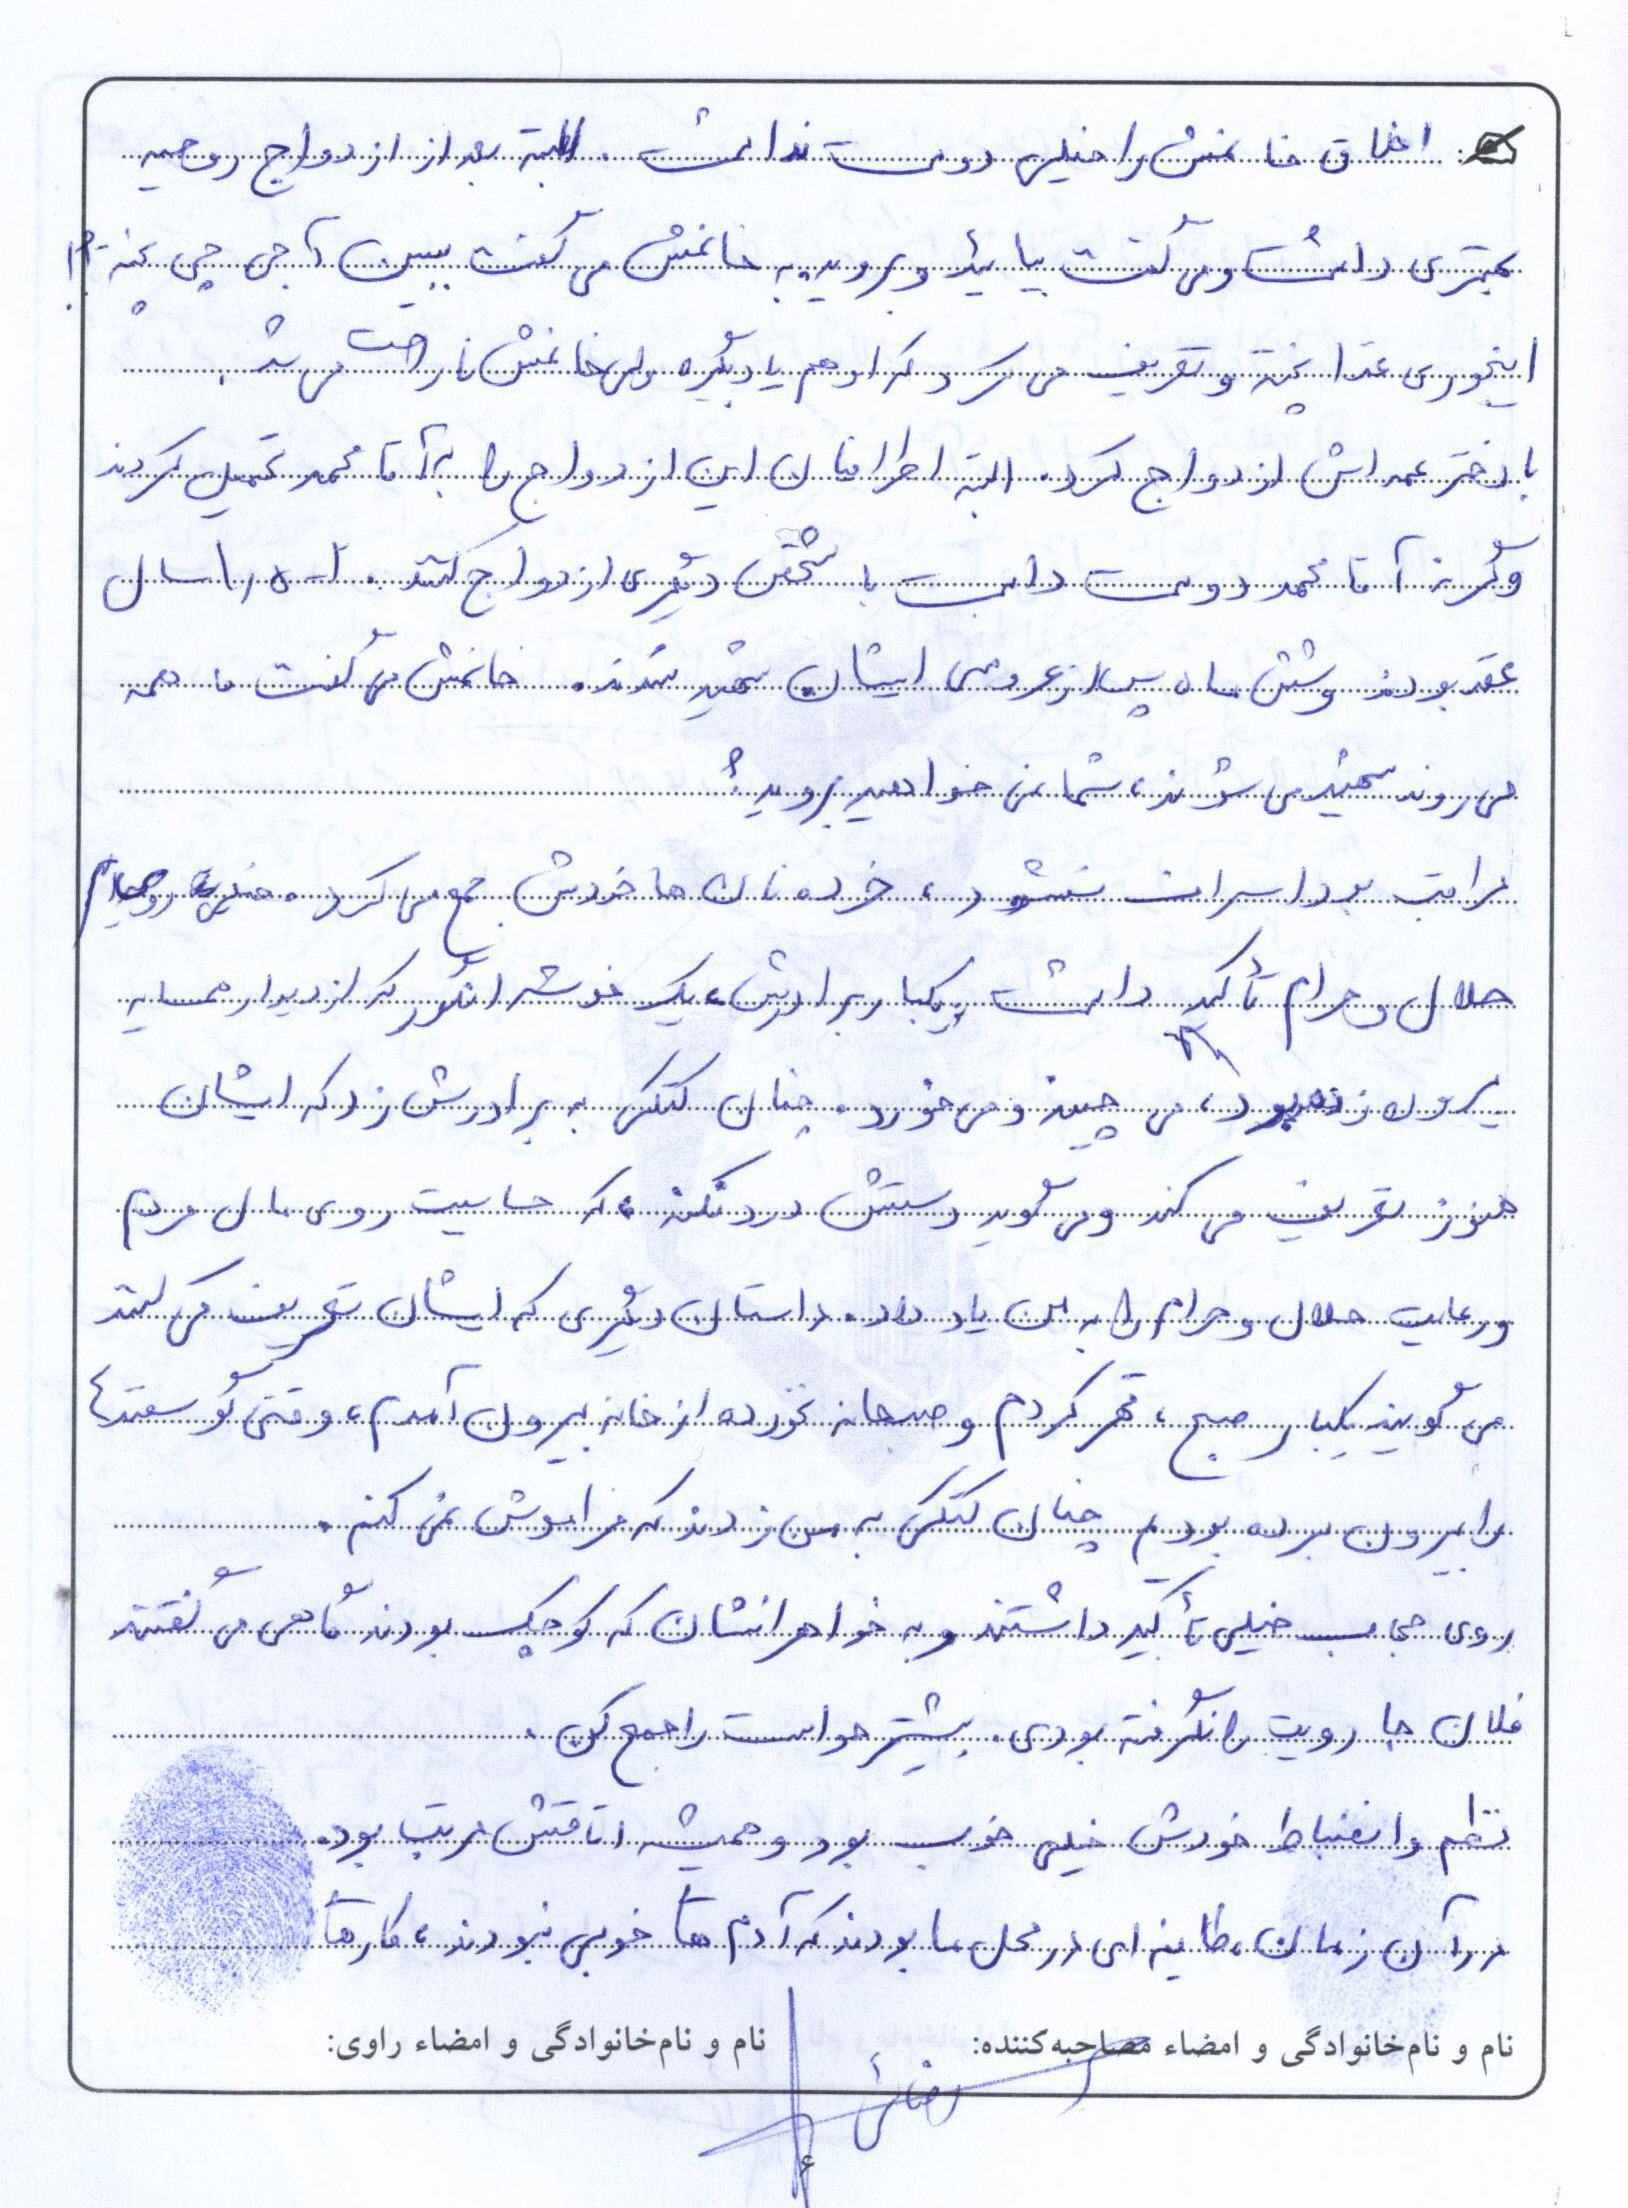 اخلاق خانمش را خیلی دوست نداشت. البته بعد از ازدواج روحیه
بهتری داشت و می گفت بیائید و بروید. به خانمش می گفت ببین آجی چی پخته؟!
اینجوری غذا پخته و تعریف می کرد که او هم یاد بگیره ولی خانمش ناراحت می شد.
با دختر عمه اش ازدواج کرد. البته اطرافیان این ازدواج را به آقا محمد تحمیل کردند
وگرنه آقا محمد دوست داشت با شخص دیگری ازدواج کنند. ۱-۱/۵ سال
عقد بودند و شش ماه پس از عروسی ایشان شهید شدند. خانمش می گفت همه
می روند شهید می شوند، شما نمی خواهید بروید؟
مراقب بود اسراف نشود، خرده نان ها خودش جمع می کرد. خیلی روی
حلال و حرام تأکید داشت یکبار برادرش، یک خوشه انگور که از دیوار همسایه
بیرون زده بود، می چیند و می خورد. چنان کتکی به برادرش زد که ایشان
هنوز تعریف می کند و می گوید دستش درد نکنه، که حساسیت روی مال مردم
و رعایت حلال و حرام را به من یاد داد. داستان دیگری که ایشان تعریف می کنند
می گویند یکبار صبح، قهر کردم و صبحانه نخورده از خانه بیرون آمدم، وقتی گوسفندها
را بیرون برده بودم چنان کتکی به من زدند که فراموش نمی کنم.
روی حجاب خیلی تأکید داشتند و به خواهرانشان که کوچک بودند گاهی می گفتند
فلان جا رویت را نگرفته بودی. بیشتر حواست را جمع کن.
نظم و انضباط خودش خیلی خوب بود و همیشه اتاقش مرتب بود.
در آن زمان، طایفه ای در محل ما بودند که آدم های خوبی نبودند، کارهای
نام و نام‌خانوادگی و امضاء مصاحبه‌کننده: نام و نام‌خانوادگی و امضاء راوی:
۶